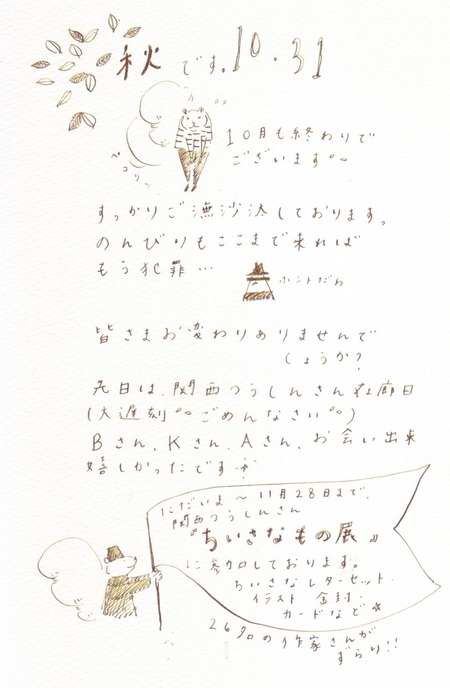 秋です。10.31
ペコリン
10月も終わりで
ございます
すっかりご漁沙汰しております。
のんびりもここまで来れば
もう犯罪…
ホントだわ
皆さまお変わりありませんで
しょうか?
先日は、関西つうしんさん在廊日
(大遅刻 ごめんなさい)
Bさん、Kさん、Aさん、お会い出来
嬉しかったです
ただいま〜11月28日まで、
関西つうしんさん
『ちいさなもの展』
に参加しております。
ちいさなレターセット.
イラスト 金封.
カードなど★
26名の作家さんが
ずらり!!